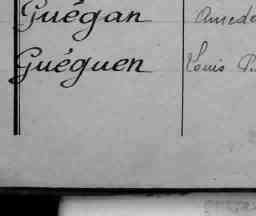 Guégan Amedé
Guéguen Louis P.